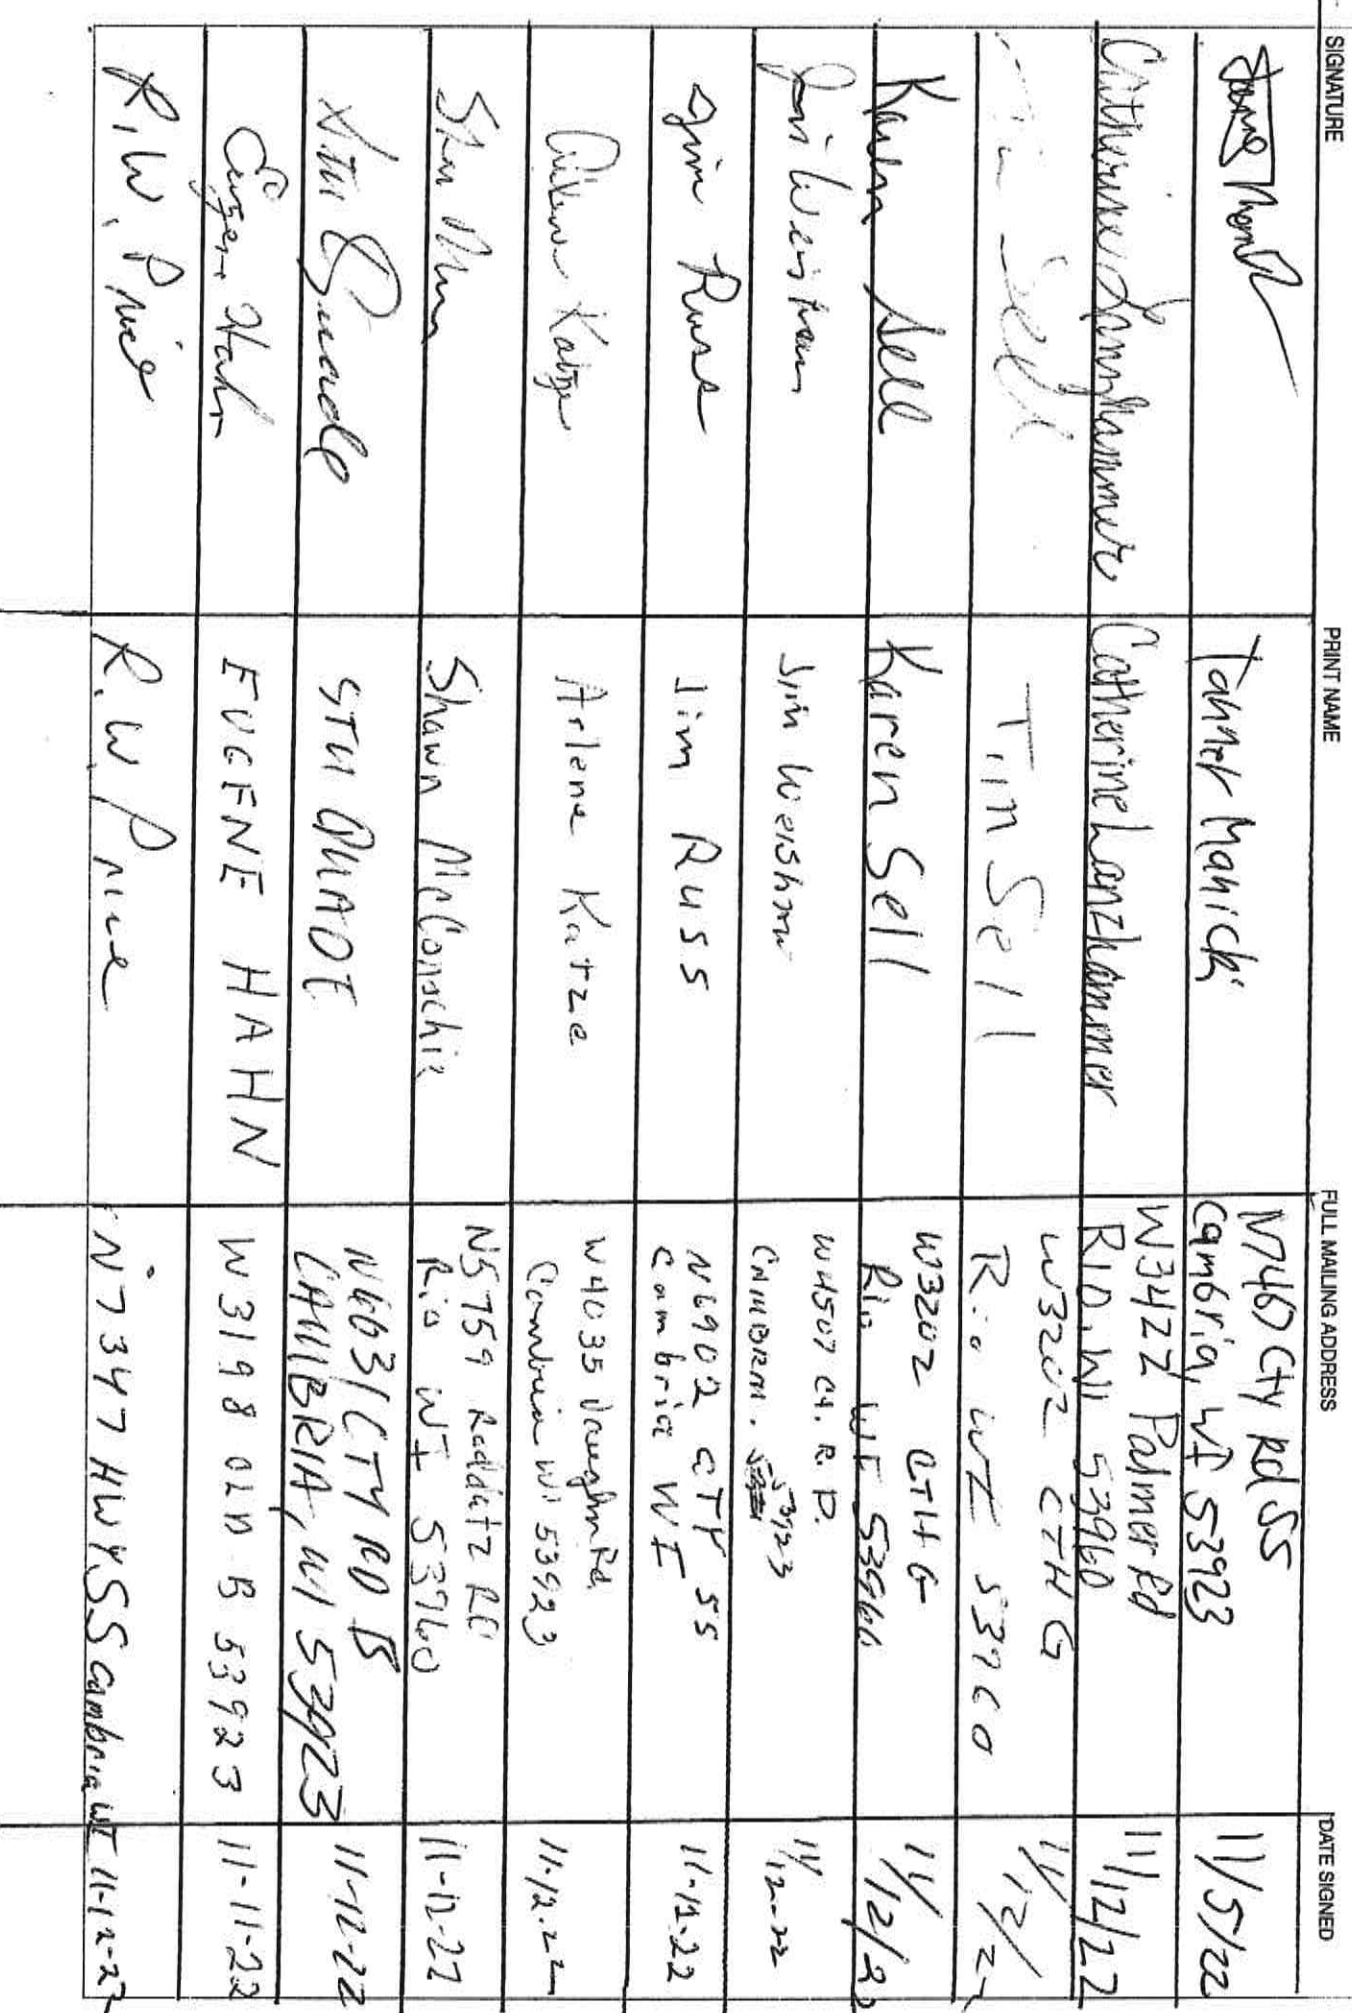 SIGNATURE PRINT NAME FULL MAILING ADDRESS DATE SIGNED
Tanner Manick N7467 Cty Rd SS
Cambria, WI 53923 11/5/22
Catherine Lanzhammer Catherine Lanzhammer W3422 Palmer Rd
RIO, WI 53960 11/12/22
Tim Sell Tim Sell W3202 CTH G
Rio WI 53960 11/12/22
Karen Sell Karen Sell W3202 CTH G
Rio WI 53960 11/12/22
Jim Weishaar W4507 P.
CAMBRIA. 53923 11/12-22
Jim Russ Jim Russ N6902 CTY SS
Cambria WI 11-12-22
Arlene Katze Arlene Katze W4035 Vaughn Rd.
Cambria WI 53923 11-12-22
Shawn McConochie N5759 Raddatz Rd
Rio WI 53960 11-12-22
Stu Quade STU QUADE N6631 CTY RD B
CAMBRIA, WI 53923 11-12-22
Eugene Hahn EUGENE HAHN W3198 OLD B 53923 11-11-22
R.W. Price R.W. Price N7347 HWY SS Cambria WI 11-12-22